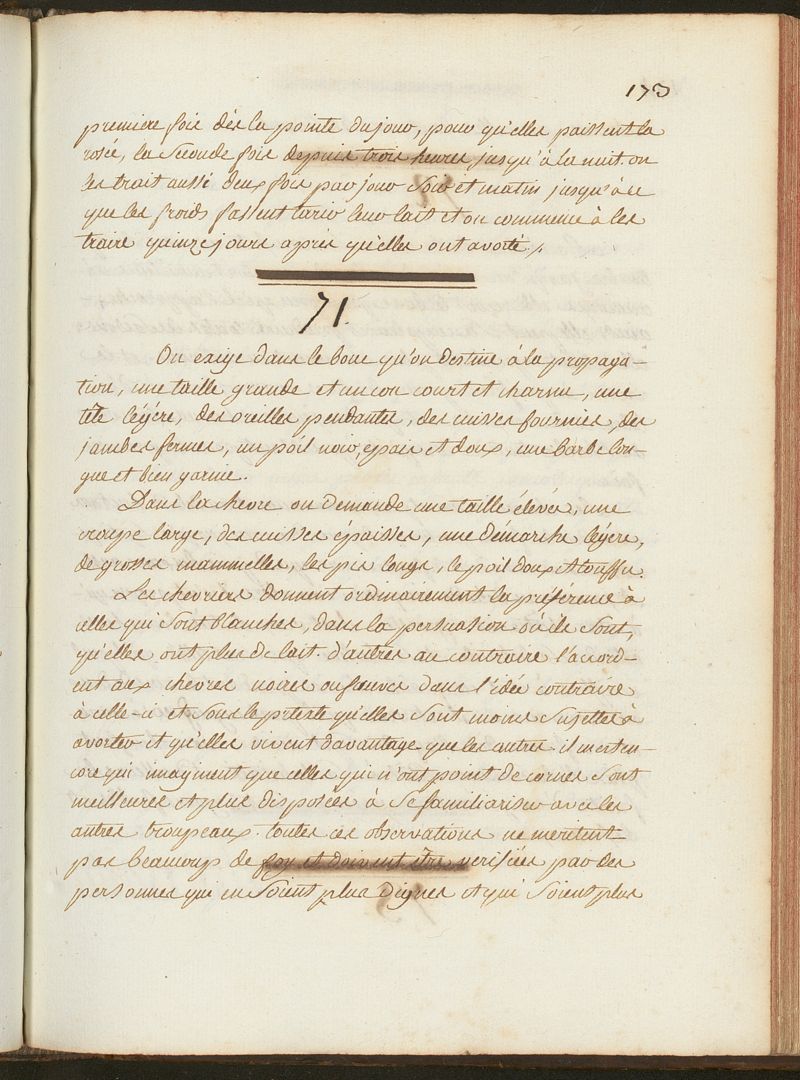 173
premiere fois dès la pointe du jour, pour qu'elles paissent la
rosée, la seconde fois depuis trois heures jusqu'à la nuit on
les trait aussi deux fois par jour soir et matin jusqu'à ce
que les froids fassent tarir leur lait et on commence à les
traire quinze jours après qu'elles ont avorté /.
71.
On exige dans le bouc qu'on destine à la propaga-
tion, une taille grande et un con court et charnu, une
tête légére, des oreilles pendantes, des cuisses fournies, des
jambes fermes, un poil noir, épais et doux, une barbe lon-
gue et bien garnie.
Dans la chevre on demande une taille élevée, une
croupe large, des cuisses épaisses, une démarche légére,
de grosses mammelles, les pis longs, le poil doux et touffu.
Les chevriers donnent ordinairement la préférence à
celles qui sont blanches, dans la persuasion où ils sont,
qu'elles ont plus de lait. d'autres au contraire l'accord-
ent aux chevres noires ou fauves dans l'idée contraire
à celle-ci et sous le pretexte qu'elles sont moins sujettes à
avorter et qu'elles vivent davantage que les autres. il en est en-
core qui imaginent que celles qui n'ont point de cornes sont
meilleures et plus disposées à se familiariser avec les
autres troupeaux. toutes ces observations ne meritent
pas beaucoup de foy et doivent être verifiées par des
personnes qui en soient plus dignes et qui soient plus